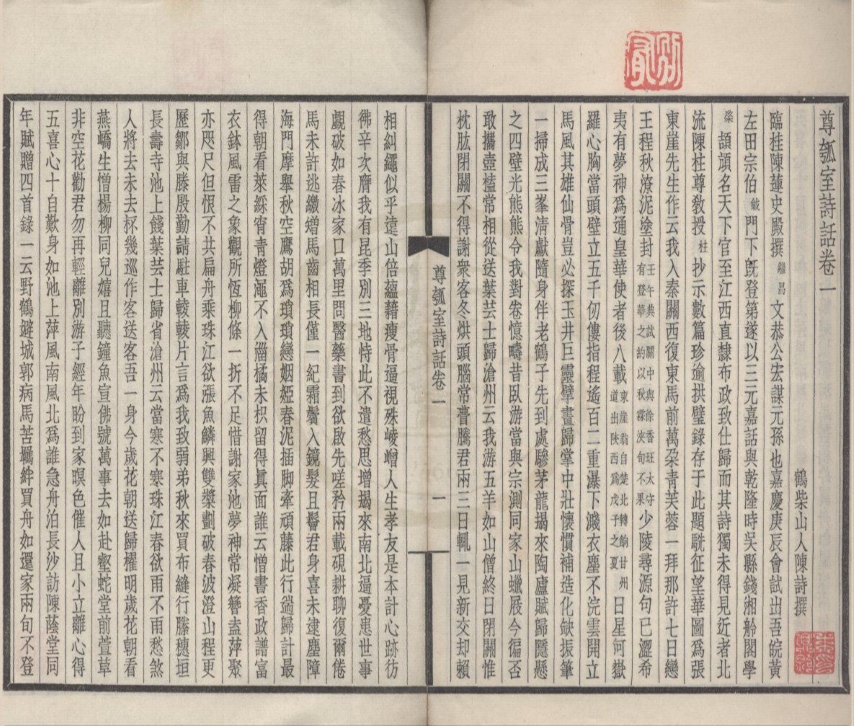 尊瓠室詩話卷一
鶴柴山人陳詩撰
臨桂陳蓮史殿撰繼昌文恭公宏謀元孫也嘉慶庚辰會試出吾皖黃
左田宗伯鉞門下旣登第遂以三元嘉話與乾隆時吳縣錢湘舲閣學
棨頡頏名天下官至江西直隸布政致仕歸而其詩獨未得見近者北
流陳柱尊教授柱抄示數篇珍逾拱璧錄存于此題征望華圖爲張
東崖先生作云我入秦關西復東馬前萬朵青芙蓉一拜那許七日戀
王程秋潦泥塗封壬午典試關中與徐香垞太守有登華之約以秋霖浹旬不果少陵尋源句已澀希
夷有夢神爲通皇華使者後八載東崖翁自楚北轉餉甘州道出陝西爲戊子之夏日星河嶽
羅心胸當頭壁立五千仞僂指程遙百二重瀑下濺衣塵不浣雲開立
馬風其雄仙骨豈必探玉井巨靈擘畫歸掌中壯懷慣補造化缺振筆
一掃成三峯清獻隨身伴老鶴子先到處驂茅龍朅來陶廬賦歸隱懸
之四壁光熊熊令我對卷憶疇昔臥游當與宗測同家山蠟屐今偏否
敢攜壺榼常相從送葉芸士歸滄州云我游五羊如山僧終日閉關惟
枕肱閉關不得謝衆客冬烘頭腦常瞢騰君兩三日輒一見新交却賴
尊瓠室詩話卷一
一
相糾繩似乎遠山倍蘊藉瘦骨逼視殊崚嶒人生孝友是本計心跡彷
彿辛次膺我有昆季別三地恃此不遣愁思增朅來南北逼憂患世事
覷破如春冰家口萬里問醫藥書到欲啟先嗟矜兩載硯耕聊復爾倦
馬未許逃繳矰馬齒相長僅一紀霜鬢入鏡髮且鬅君身喜未逮塵障
海門摩舉秋空鷹胡爲瑣瑣戀姻婭春泥插脚牽頑藤此行適歸計最
得朝看萊綵宵青燈不入淄橘未枳留得眞面誰云憎書香政譜富
衣鉢風雷之象觀所恆柳條一折不足惜謝家池夢神常凝簪盍萍聚
亦咫尺但恨不共扁舟乘珠江欲漲魚鱗興雙槳劃破春波澄山程更
歷鄒與滕殷勤請駐車輘輘片言爲我致弱弟秋來買布縫行縢穗垣
長壽寺池上餞葉芸士歸省滄州云當寒不寒珠江春欲雨不雨愁煞
人將去未去杯幾巡作客送客吾一身今歲花朝送歸櫂明歲花朝看
燕嶠生憎楊柳同兒嬉且聽鐘魚宣佛號萬事去如赴壑蛇堂前萱草
非空花勸君勿再輕離別游子經年盼到家暝色催人且小立離心得
五喜心十自歎身如池上萍風南風北爲誰急舟泊長沙訪陳蔭堂同
年賦贈四首錄一云野鶴鍵城郭病馬苦羈絆買舟如還家兩旬不登